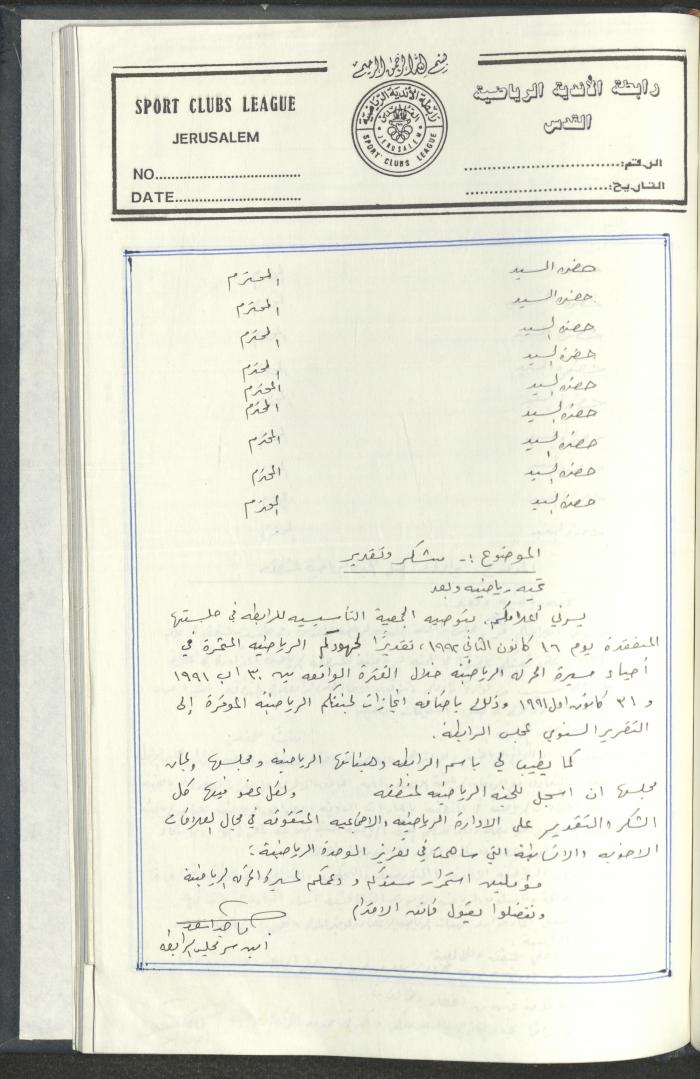 بسم الله الرحمن الرحيم
SPORT CLUBS LEAGUE
JERUSALEM
NO.
DATE
رابطة الأندية الرياضية
القدس
JERUSALEM
SPORT CLUBS LEAGUE
الرقم:
التاريخ:
حضرة السيد المحترم
حضرة السيد المحترم
حضرة السيد المحترم
حضرة السيد المحترم
حضرة السيد المحترم
حضرة السيد المحترم
حضرة السيد المحترم
حضرة السيد المحترم
حضرة السيد المحترم
الموضوع :- شكر وتقدير
تحية رياضية وبعد
يسرني أعلامكم بتوصية الجمعية التأسيسية للرابطة في جلستها
المنعقدة يوم ١٦ كانون الثاني ١٩٩٢، تقديرًا لجهودكم الرياضية المثمرة في
أحياء مسيرة الحركة الرياضية خلال الفترة الواقعة بين ٣٠ اب ١٩٩١
و ٣١ كانون اول ١٩٩١ وذلك باضافة انجازات لجنتكم الرياضية الموقرة إلى
التقرير السنوي لمجلس الرابطة.
كما يطيب لي باسم الرابطة وهيئاتها الرياضية ومجلسها ولجان
مجلسها ان اسجل للجنة الرياضية لمنطقة ولكل عضو فيها كل
الشكر والتقدير على الادارة الرياضية والاجتماعية المتفوقة في مجال العلاقات
الاخوية والانسانية التي ساهمت في تعزيز الوحدة الرياضية.
مؤملين استمرار سندكم ودعمكم لمسيرة الحركة الرياضية
وتفضلوا بقبول فائق الاحترام
ماجد اسعد
امين سر مجلس الرابطة